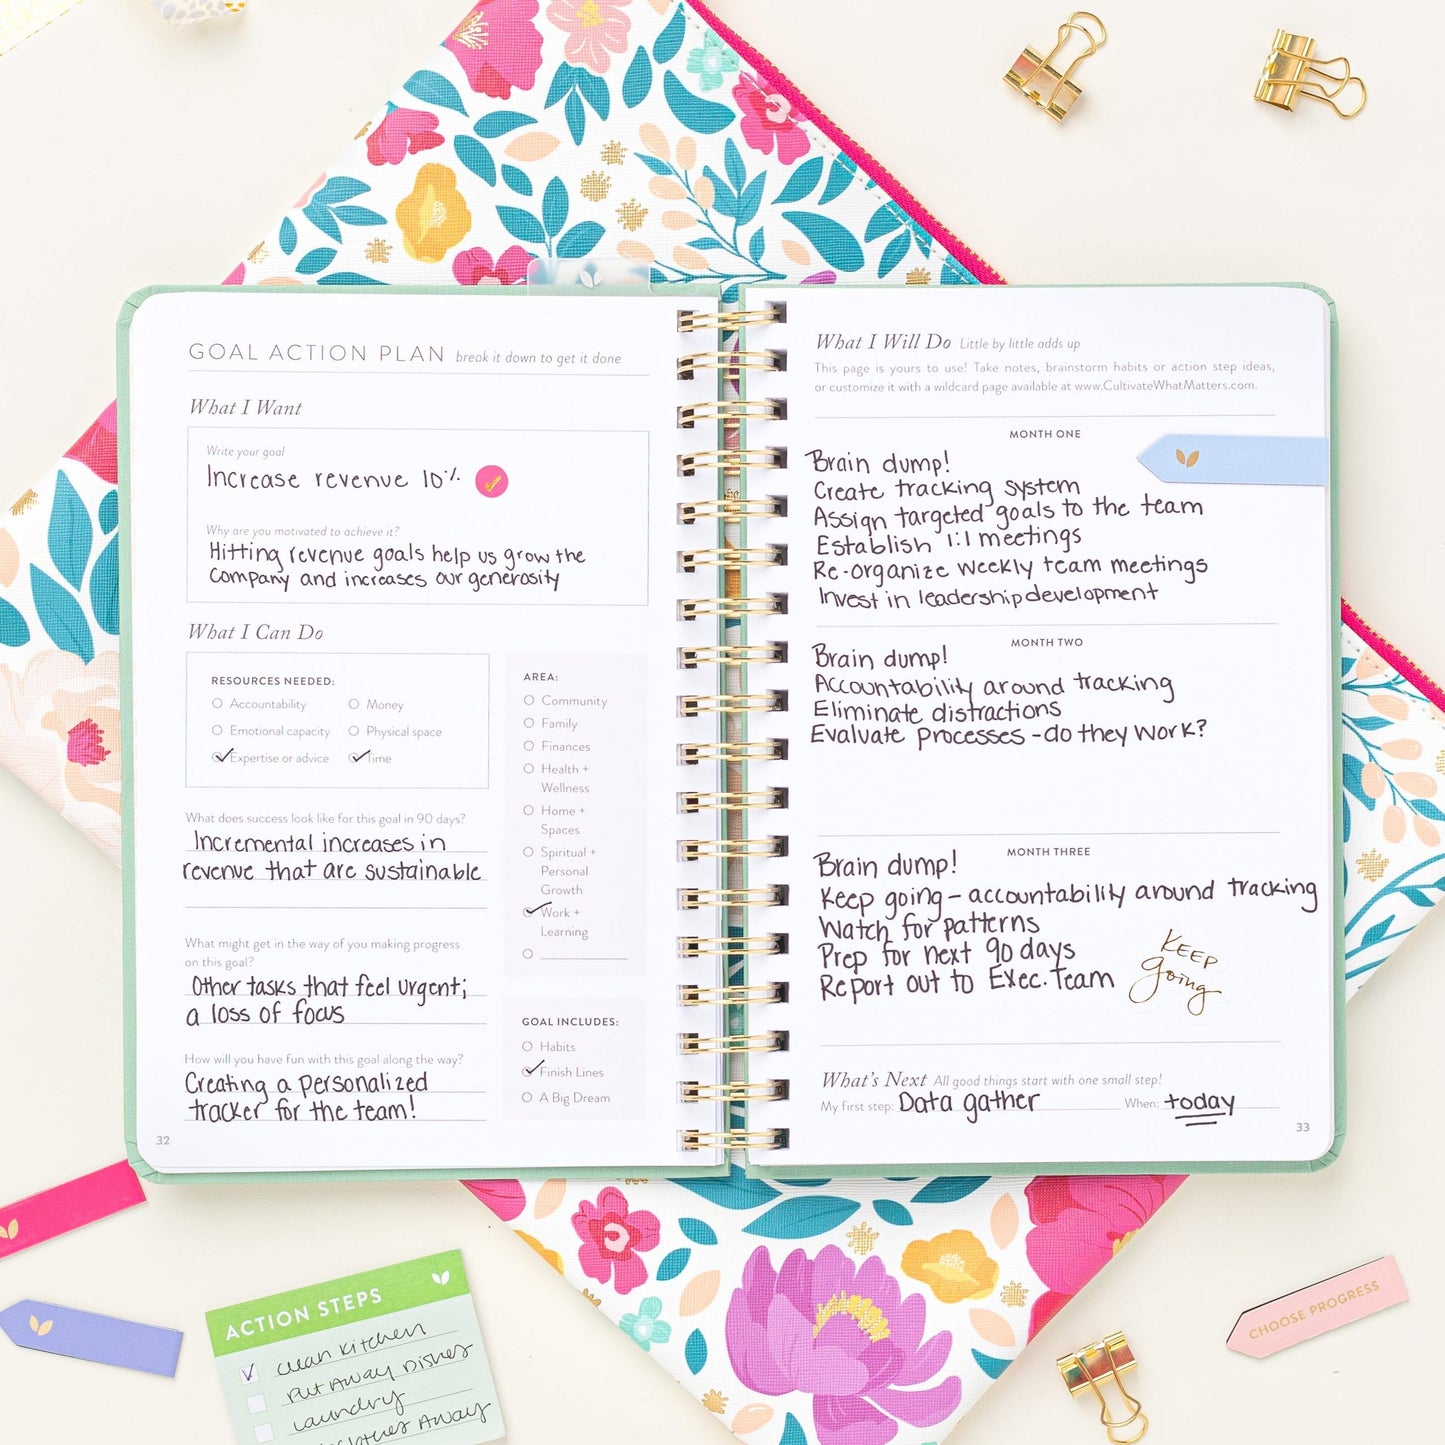 GOAL ACTION PLAN break it down to get it done
What I Want
Write your goal
Increase revenue 10%
Why are you motivated to achieve it?
Hitting revenue goals help us grow the
company and increases our generosity
What I Can Do
RESOURCES NEEDED:
Accountability
Money
Emotional capacity
Physical space
Expertise or advice
Time
AREA:
Community
Family
Finances
Health +
Wellness
Home +
Spaces
Spiritual +
Personal
Growth
Work +
Learning
What does success look like for this goal in 90 days?
Incremental increases in
revenue that are sustainable
What might get in the way of you making progress
on this goal?
Other tasks that feel urgent;
a loss of focus
How will you have fun with this goal along the way?
Creating a personalized
tracker for the team!
GOAL INCLUDES:
Habits
Finish Lines
A Big Dream
32
What I Will Do Little by little adds up
This page is yours to use! Take notes, brainstorm habits or action step ideas,
or customize it with a wildcard page available at www.CultivateWhatMatters.com.
MONTH ONE
Brain dump!
Create tracking system
Assign targeted goals to the team
Establish 1:1 meetings
Re-organize weekly team meetings
Invest in leadership development
MONTH TWO
Brain dump!
Accountability around tracking
Eliminate distractions
Evaluate processes - do they work?
MONTH THREE
Brain dump!
Keep going - accountability around tracking
Watch for patterns
Prep for next 90 days
Report out to Exec. Team
KEEP
going
What's Next All good things start with one small step!
My first step: Data gather When: today
33
ACTION STEPS
clean kitchen
put away dishes
laundry
clothes away
CHOOSE PROGRESS